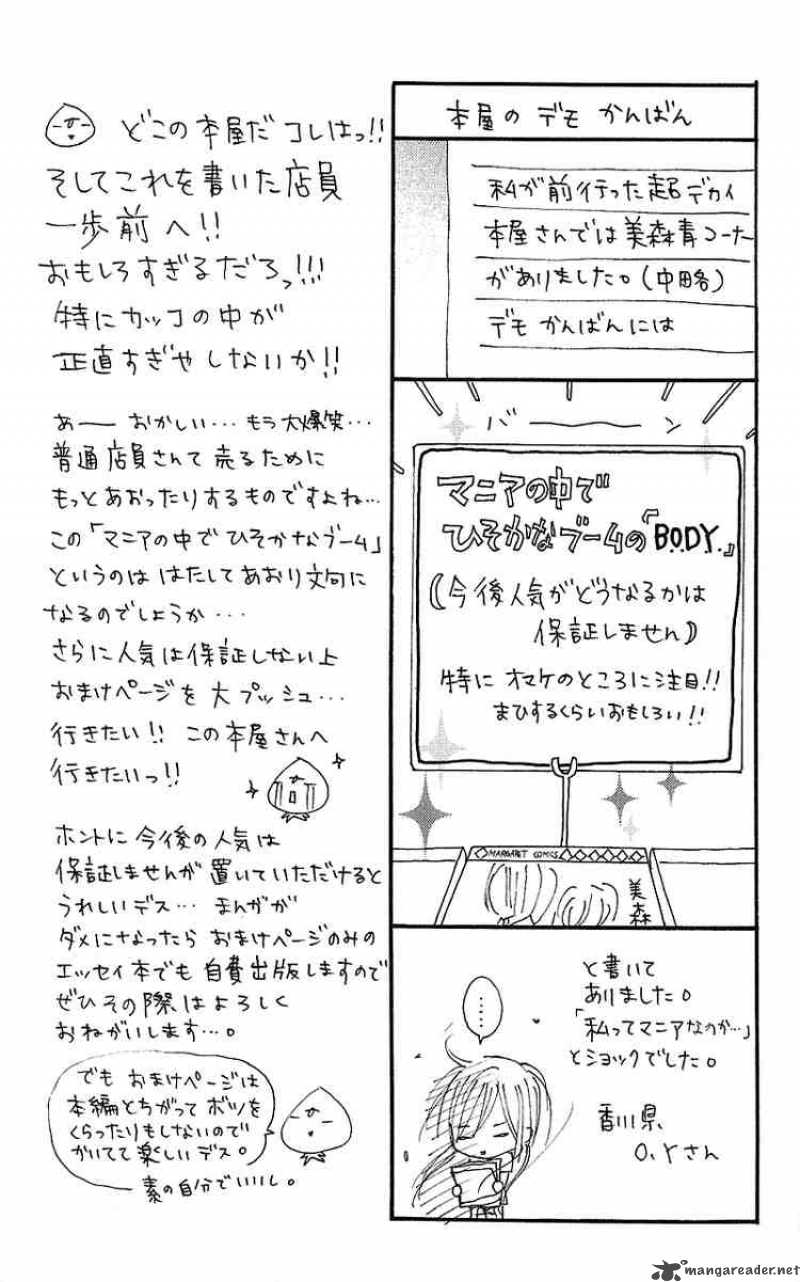 本屋の デモ かんばん
私が前行った超デカイ
本屋さんでは美森青コーナー
がありました。(中略)
デモ かんばんには
バーーン
マニアの中で
ひそかなブームの『B.O.D.Y.』
(今後人気がどうなるかは
保証しません)
特に オマケのところに注目!!
まひするくらいおもしろい!!
MARGARET COMICS
美森
と書いて
ありました。
「私ってマニアなのか…」
とショックでした。
香川県
O.Yさん
……
どこの本屋だコレはっ!!
そしてこれを書いた店員
一歩前へ!!
おもしろすぎるだろっ!!!
特にカッコの中が
正直すぎやしないか!!
あーー おかしい… もう大爆笑…
普通店員さんて 売るために
もっとあおったりするものですよね…
この「マニアの中で ひそかなブーム」
というのは はたしてあおり文句に
なるのでしょうか…
さらに人気は保証しない上
おまけページを 大プッシュ…
行きたい!! この本屋さんへ
行きたいっ!!
ホントに今後の人気は
保証しませんが 置いていただけると
うれしいデス… まんがが
ダメになったら おまけページのみの
エッセイ本でも 自費出版しますので
ぜひその際はよろしく
おねがいします…。
でも おまけページは
本編とちがって ボツを
くらったりもしないので
かいてて楽しいデス。
素の自分でいいし。
mangareader.net